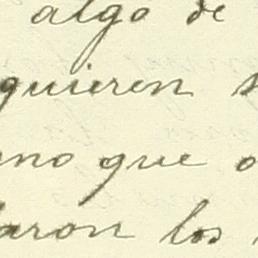 algo de
quieren s
no que o
aron los